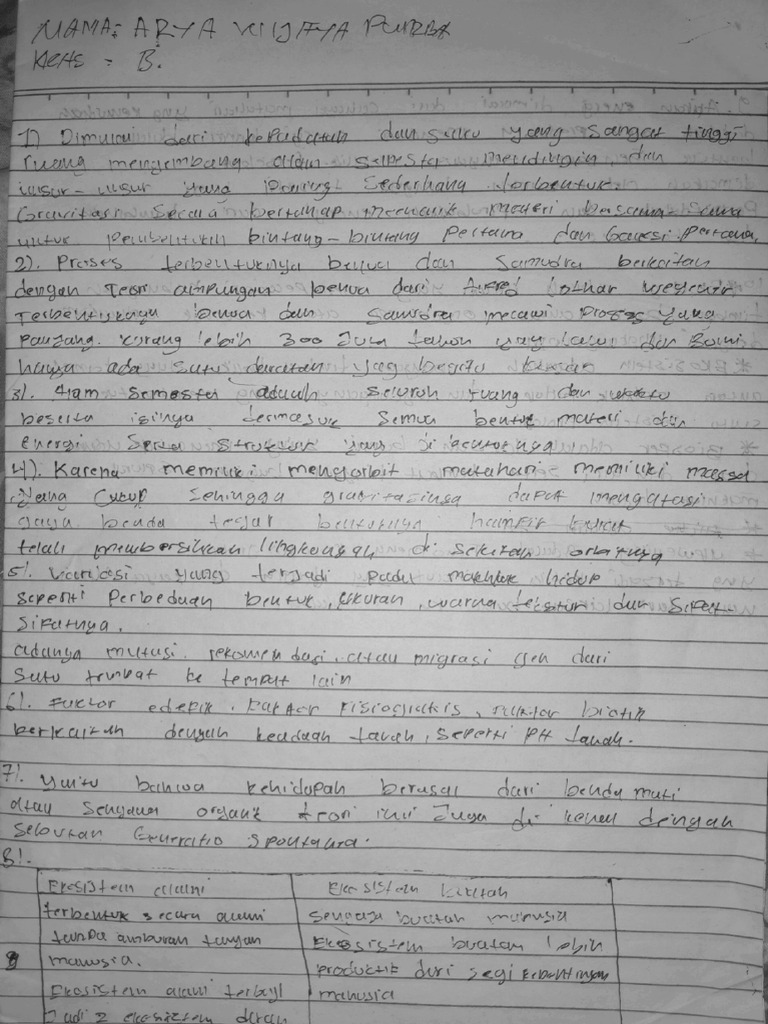 NAMA: ARYA WIJAYA PURBA
Kelas = B.
1) Dimulai dari kepadatan dan suhu yang sangat tinggi
ruang mengembang alam semesta mendingin dan
unsur-unsur yang paling sederhana terbentuk
Gravitasi secara bertahap menarik materi bersama-sama
untuk pembentukan bintang-bintang pertama dan Galaksi pertama
2). Proses terbentuknya benua dan Samudra berkaitan
dengan Teori apungan benua dari Alfred Lothar Wegener
Terbentuknya benua dan Samudra melalui proses yang
panjang. Kurang lebih 300 Juta tahun yang lalu di Bumi
hanya ada satu daratan yag begitu
3). Alam Semesta adalah seluruh ruang dan waktu
beserta isinya termasuk Semua bentuk materi dan
energi Serta struktur yang di
4). Karena memiliki mengorbit matahari memiliki massa
yang cukup Sehingga gravitasinya dapat mengatasi
gaya benda tegar bentuknya hampir bulat
telah membersihkan lingkungan di sekitar orbitnya
5). Variasi yang terjadi pada makhluk hidup
seperti Perbedaan bentuk, ukuran, warna tekstur dan Sifat-
Sifatnya.
adanya mutasi. rekomendasi. atau migrasi gen dari
satu tempat ke tempat lain
6). Faktor edepik, Faktor Fisiografis, Faktor biotik
berkaitan dengan keadaan tanah, seperti PH tanah.
7). Yaitu bahwa kehidupan berasal dari benda mati
atau senyawa organik teori ini Juga di kenal dengan
sebutan Generatio Spontania.
8).
Ekosistem alami Ekosistem buatan
terbentuk secara alami Sengaja buatan manusia
tanpa campuran tangan Ekosistem buatan lebih
manusia. produktif dari segi kepentingan
Ekosistem alami terbagi manusia
Jadi 2 ekosistem